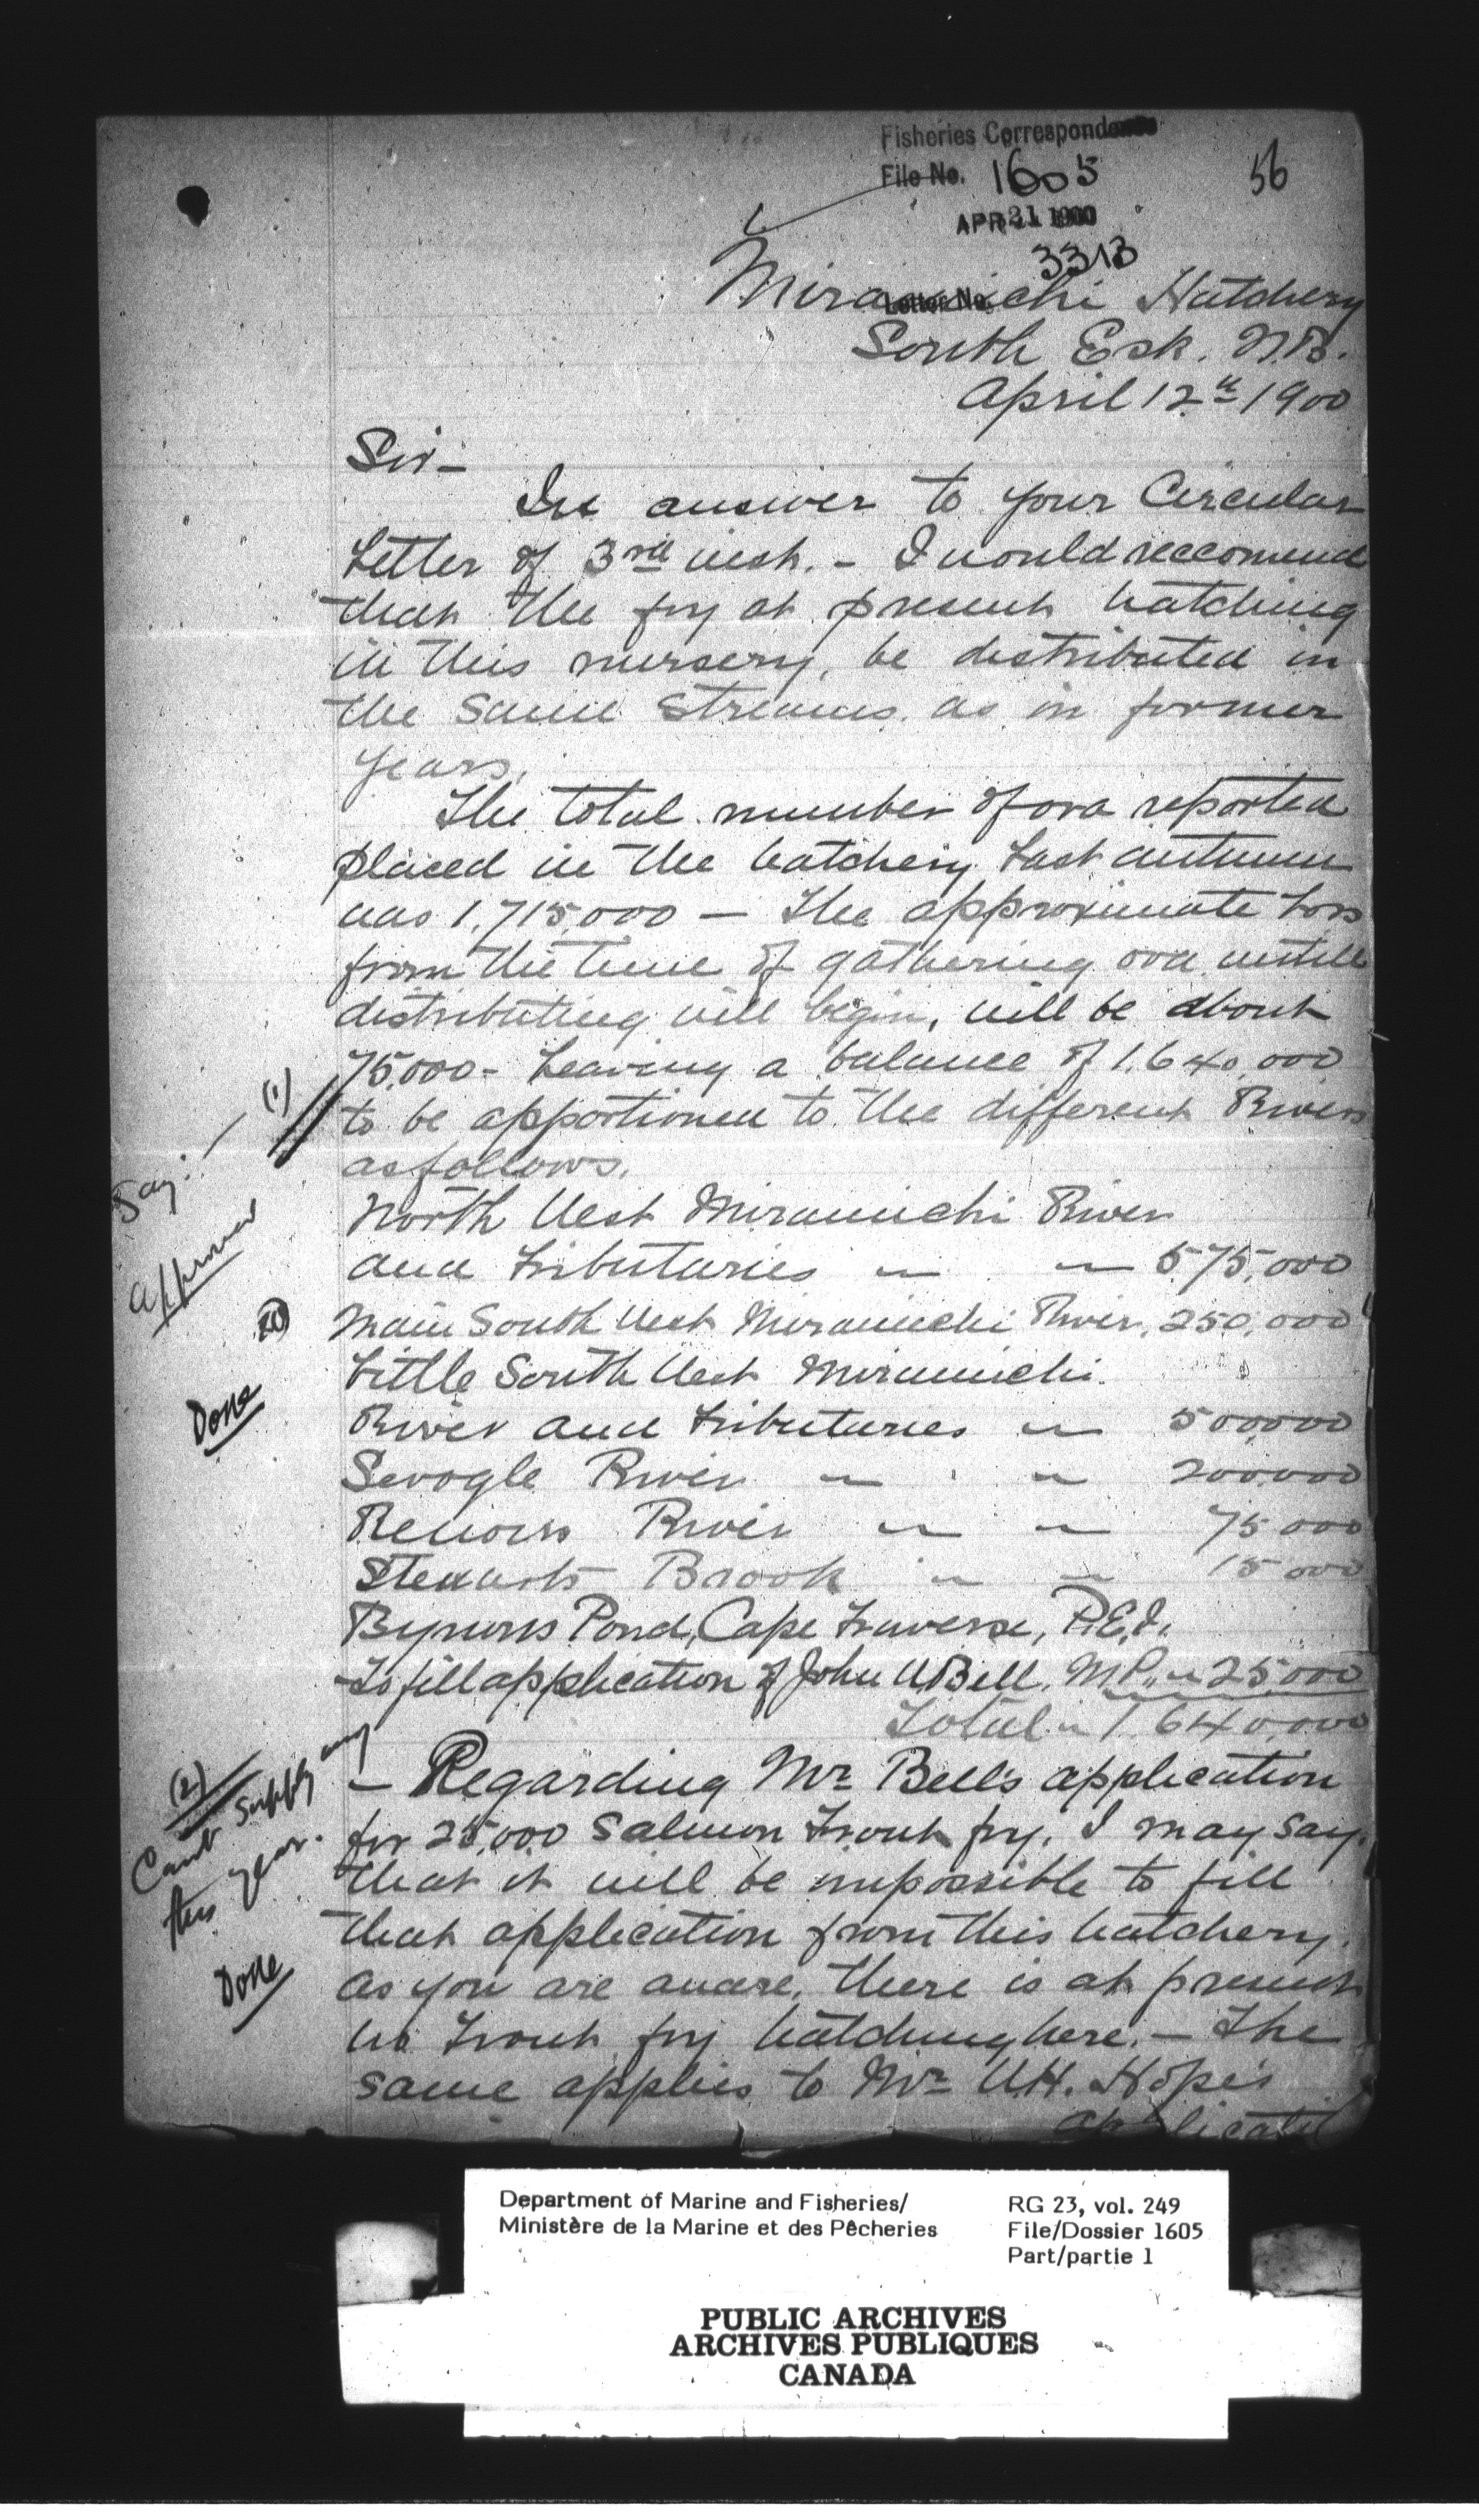 Fisheries Correspondence
File No. 1605
56
APR 21 1900
3313
Letter No.
Miramichi Hatchery
South Esk. N.B.
April 12th 1900
Sir-
In answer to your Circular
Letter of 3rd inst. - I would reccomend
that the fry at present hatching
in this nursery, be distributed in
the same streams as in former
years.
The total number of ova reported
placed in the hatchery last autumn
was 1,715,000 - The approximate loss
from the time of gathering ova untill
distributing will begin, will be about
75,000- Leaving a balance of 1.640,000
(1)
to be apportioned to the different Rivers
as follows.
Say:
approved
North West Miramichi River
and tributaries " " 575,000
Main South West Miramichi River, 250,000
Done
Little South West Miramichi
River and tributaries " 500,000
Sevogle River " " 200,000
Renous River " " 75 000
Stewarts Brook " " 15 000
Bynums Pond, Cape Traverse, P.E.I.
To fill application of John W. Bell, M.P. " 25,000
Total " 1,640,000
(2)
Can't supply any
this year.
Done
- Regarding Mr Bell's application
for 25,000 Salmon Trout fry, I may say,
that it will be impossible to fill
that application from this hatchery.
as you are aware, there is at present
no trout fry hatching here. - The
same applies to Mr W.H. Hope's
applicati
Department of Marine and Fisheries/
Ministère de la Marine et des Pêcheries
RG 23, vol. 249
File/Dossier 1605
Part/partie 1
PUBLIC ARCHIVES
ARCHIVES PUBLIQUES
CANADA